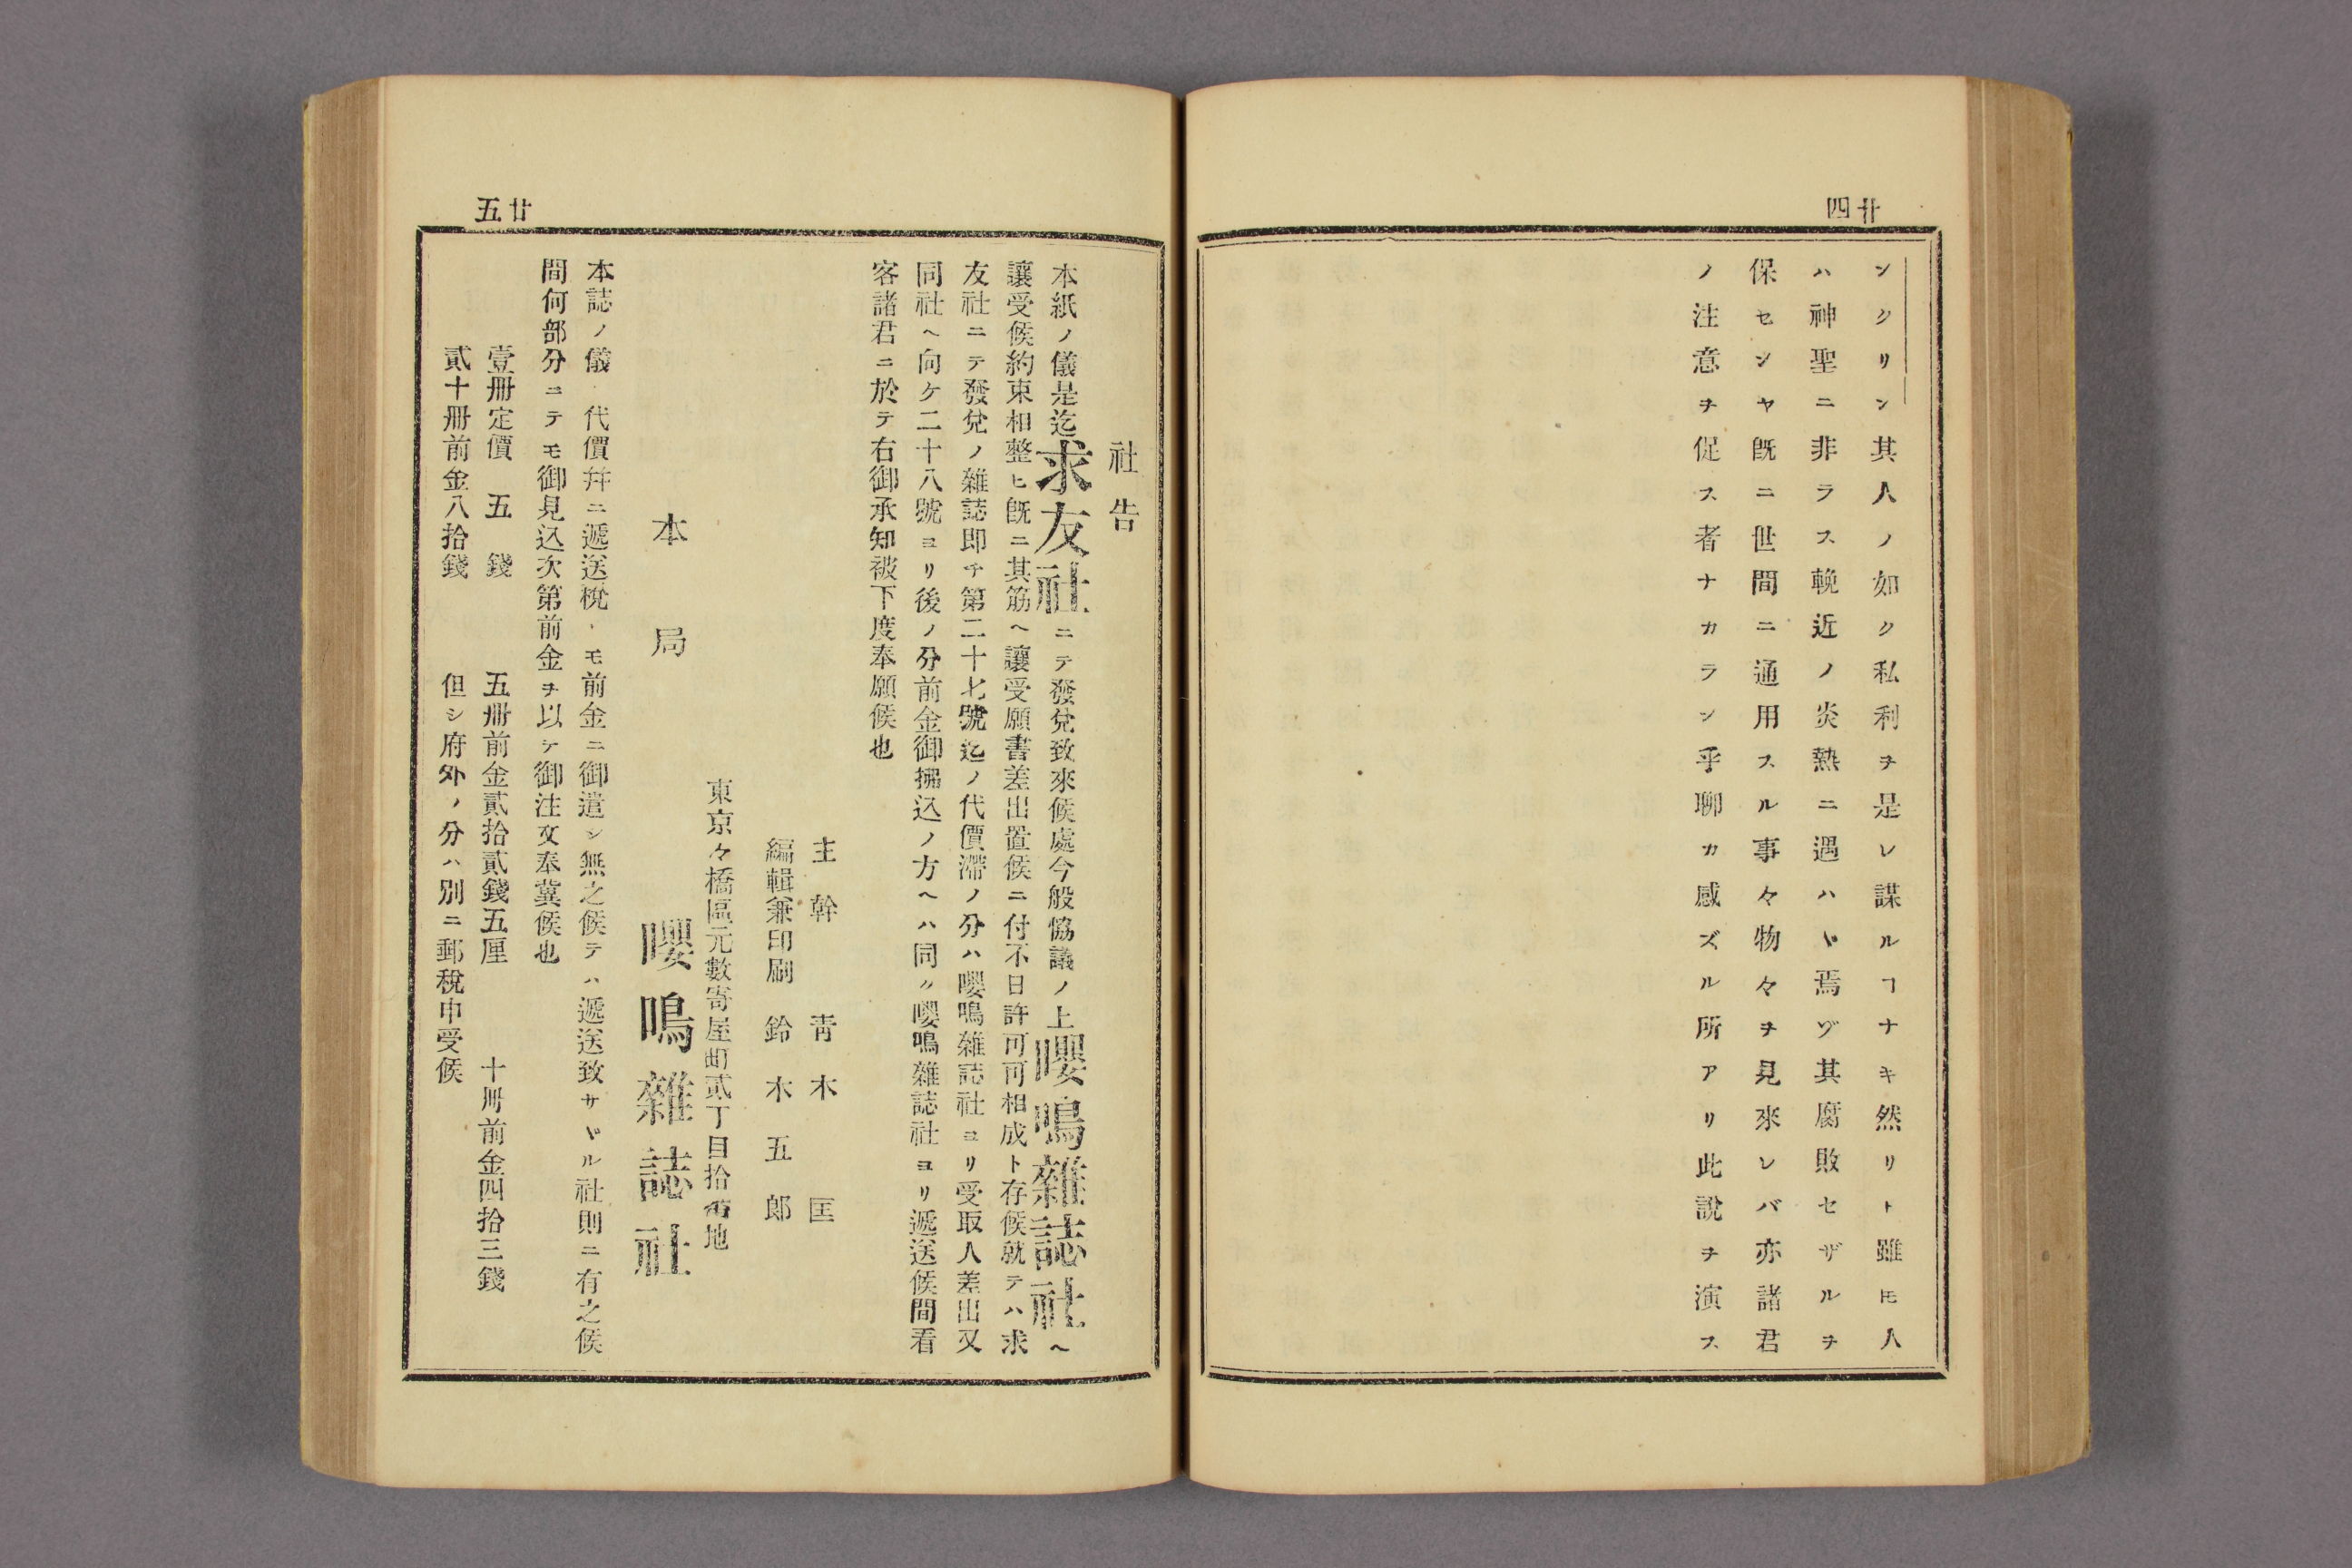 廿四
ンクリン其人ノ如ク私利ヲ是レ謀ルヿナキ然リト雖モ人
ハ神聖ニ非ラス輓近ノ炎熱ニ遇ハヾ焉ゾ其腐敗セザルヲ
保センヤ既ニ世間ニ通用スル事々物々ヲ見來レバ亦諸君
ノ注意ヲ促ス者ナカラン乎聊カ感ズル所アリ此說ヲ演ス
廿五
社告
本紙ノ儀是迄求友社ニテ發兌致來候處今般恊議ノ上嚶鳴雜誌社ヘ
讓受候約束相整ヒ既ニ其筋ヘ讓受願書差出置候ニ付不日許可可相成ト存候就テハ求
友社ニテ發兌ノ雜誌即チ第二十七號迄ノ代價滯ノ分ハ嚶鳴雜誌社ヨリ受取人差出又
同社ヘ向ケ二十八號ヨリ後ノ分前金御拂込ノ方ヘハ同ク嚶鳴雜誌社ヨリ遞送候間看
客諸君ニ於テ右御承知被下度奉願候也
主幹 靑木匡
編輯兼印刷 鈴木五郎
東京々橋區元數寄屋町貳丁目拾番地
本局 嚶鳴雜誌社
本誌ノ儀代價幷ニ遞送稅トモ前金ニ御遣シ無之候テハ遞送致サヾル社則ニ有之候
間何部分ニテモ御見込次第前金ヲ以テ御注文奉冀候也
壹册定價 五錢 五册前金貳拾貳錢五厘 十册前金四拾三錢
貳十册前金八拾錢 但シ府外ノ分ハ別ニ郵稅申受候